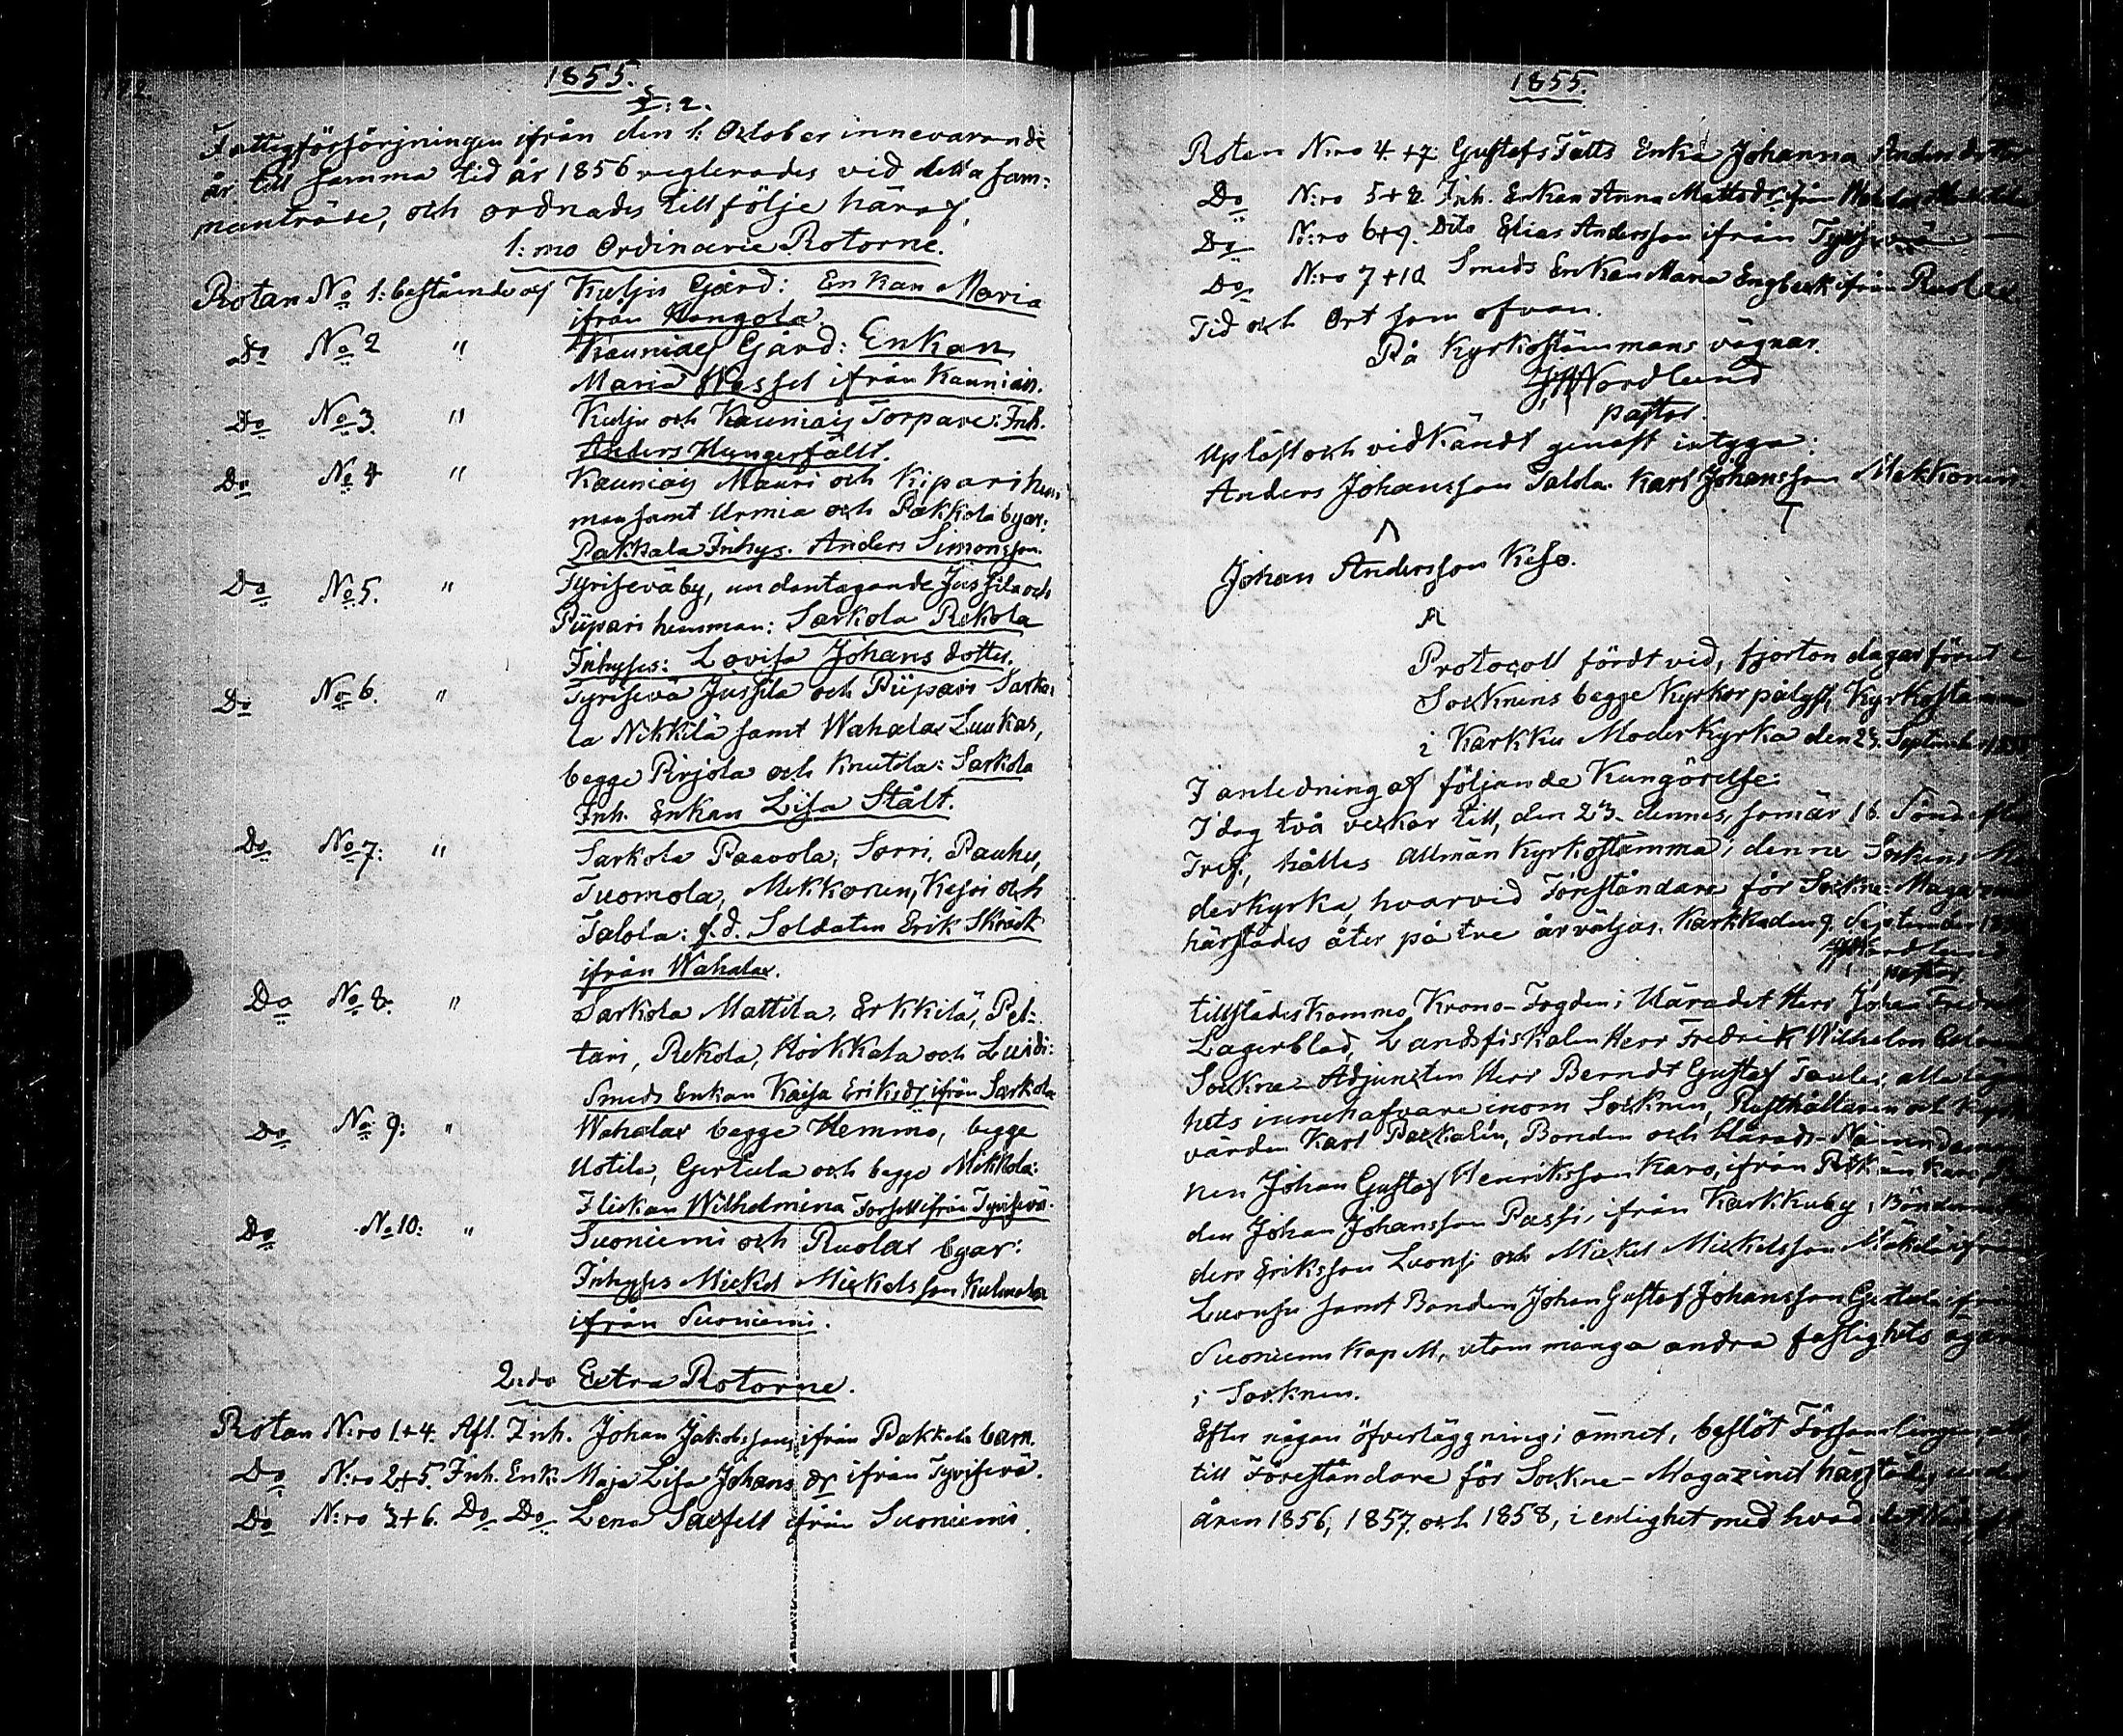 1855.
§: 2.
Fattigförsörjningen ifrån den 1: October innevarande
år till samma tid år 1856 reglerades vid detta sam-
manträde, och ordnades till följe häraf.
1:mo Ordinarie Rotorne.
Rotan No 1: bestående af Kulju Gård: Enkan Maria
ifrån Hangola.
Do No 2 " Kauniais Gård: Enkan
Maria Wessel ifrån Kauniais.
Do No 3. " Kulju och Kauniais Torpare: Inh.
Anders Hungerfällt.
Do No 4 " Kauniais Mauri och Kipari hem-
man samt Urmia och Pakkala byar:
Pakkala Inhys. Anders Simonsson.
Do No 5. " Tyrisevä by, undantagande Jussila och
Piipari hemman: Sarkola Rekola
Inhyses: Lovisa Johans dotter.
Do No 6. " Tyrisevä Jussila och Piipari Sarko-
la Nikkilä samt Wahalax Luukas,
begge Pirjola och Knutila: Sarkola
Inh. Enkan Lisa Stålt.
Do No 7: " Sarkola Paavola, Sorri, Pauhu,
Tuomola, Mekkonen, Kesoi och
Talola: f.d. Soldaten Erik Skräck
ifrån Wahalax.
Do No 8: " Sarkola Mattila, Erkkilä, Pel-
tari, Rekola, Hörkkala och Luidi:
Smeds Enkan Kaisa Eriksdr ifrån Sarkola
Do No 9: " Wahalax begge Hemmo, begge
Uotila, Gertula och begge Mikkola:
Flickan Wilhelmina Forsell ifrån Tyrisevä.
Do No 10: " Suoniemi och Ruolax byar:
Inhyses Mickel Mickelsson Kulmala
ifrån Suoniemi.
2:do Extra Rotorne.
Rotan N:ro 1+4. Afl. Inh. Johan Jakobssons ifrån Pakkala barn.
Do N:ro 2+5. Inh. Enk: Maja Lisa Johans dr ifrån Tyrisevä.
Do N:ro 3+6. Do Do Lena Saxfelt ifrån Suoniemi.
1855.
Rotan N:ro 4+7 Gustafs Tätts Enka Johanna Anders dotter
Do N:ro 5+8 Inh. Enkan Anna Matts dr ifrån
Do N:ro 6+9. Dito Elias Andersson ifrån Tyrisevä
Do N:ro 7+10 Smeds Enkan Maria Engberk ifrån Ruolax.
Tid och Ort som ofvan.
På Kyrkostämmans vägnar.
Nordlund
pastor.
Upläst och vidkändt genast intyga:
Anders Johansson Talola. Karl Johansson Mekkonen
Johan Andersson Keso.
Protocoll fördt vid, fjorton dagar förut i
Socknens begge Kyrkor pålyst, Kyrkostämma
i Karkku Moderkyrka den 23. September 1855
I anledning af följande Kungörelse:
I dag två veckor till, den 23. dennes, som är 16. Sönd. efter
Tref., hålles allmän Kyrkostämma i denne Sockens Mo-
derkyrka, hvarvid Föreståndare för Sockne-Magasinet
härstädes åter på tre år väljas. Karkku den 9. September 1855
Nordlund
pastor.
tillstädes kommo, Krono-Fogden i Häradet Herr Johan Fredrik
Lagerblad, Landsfiskalen Herr Fredrik Wilhelm
Sockne-Adjuncten Herr Berndt Gustaf Tauler, alla
hets innehafvare inom Socknen, Rusthållaren och Kyrko-
värden Karl Packalén, Bonden och Härads-Nämndeman-
nen Johan Gustaf Henriksson Karo, ifrån
den Johan Johansson Passi, ifrån Karkkuby, Bönderna
ders Eriksson Luonsi och Mickel Mickelsson Mäkelä ifrån
Luonsu samt Bonden Johan Gustaf Johansson Gertula ifrån
Suoniemi Kapell, utom många andra fastighets ägare
i Socknen.
Efter någon öfverläggning i ämnet, beslöt Församlingen att
till Föreståndare för Sockne-Magazinet härstädes under
åren 1856, 1857 och 1858, i enlighet med hvad